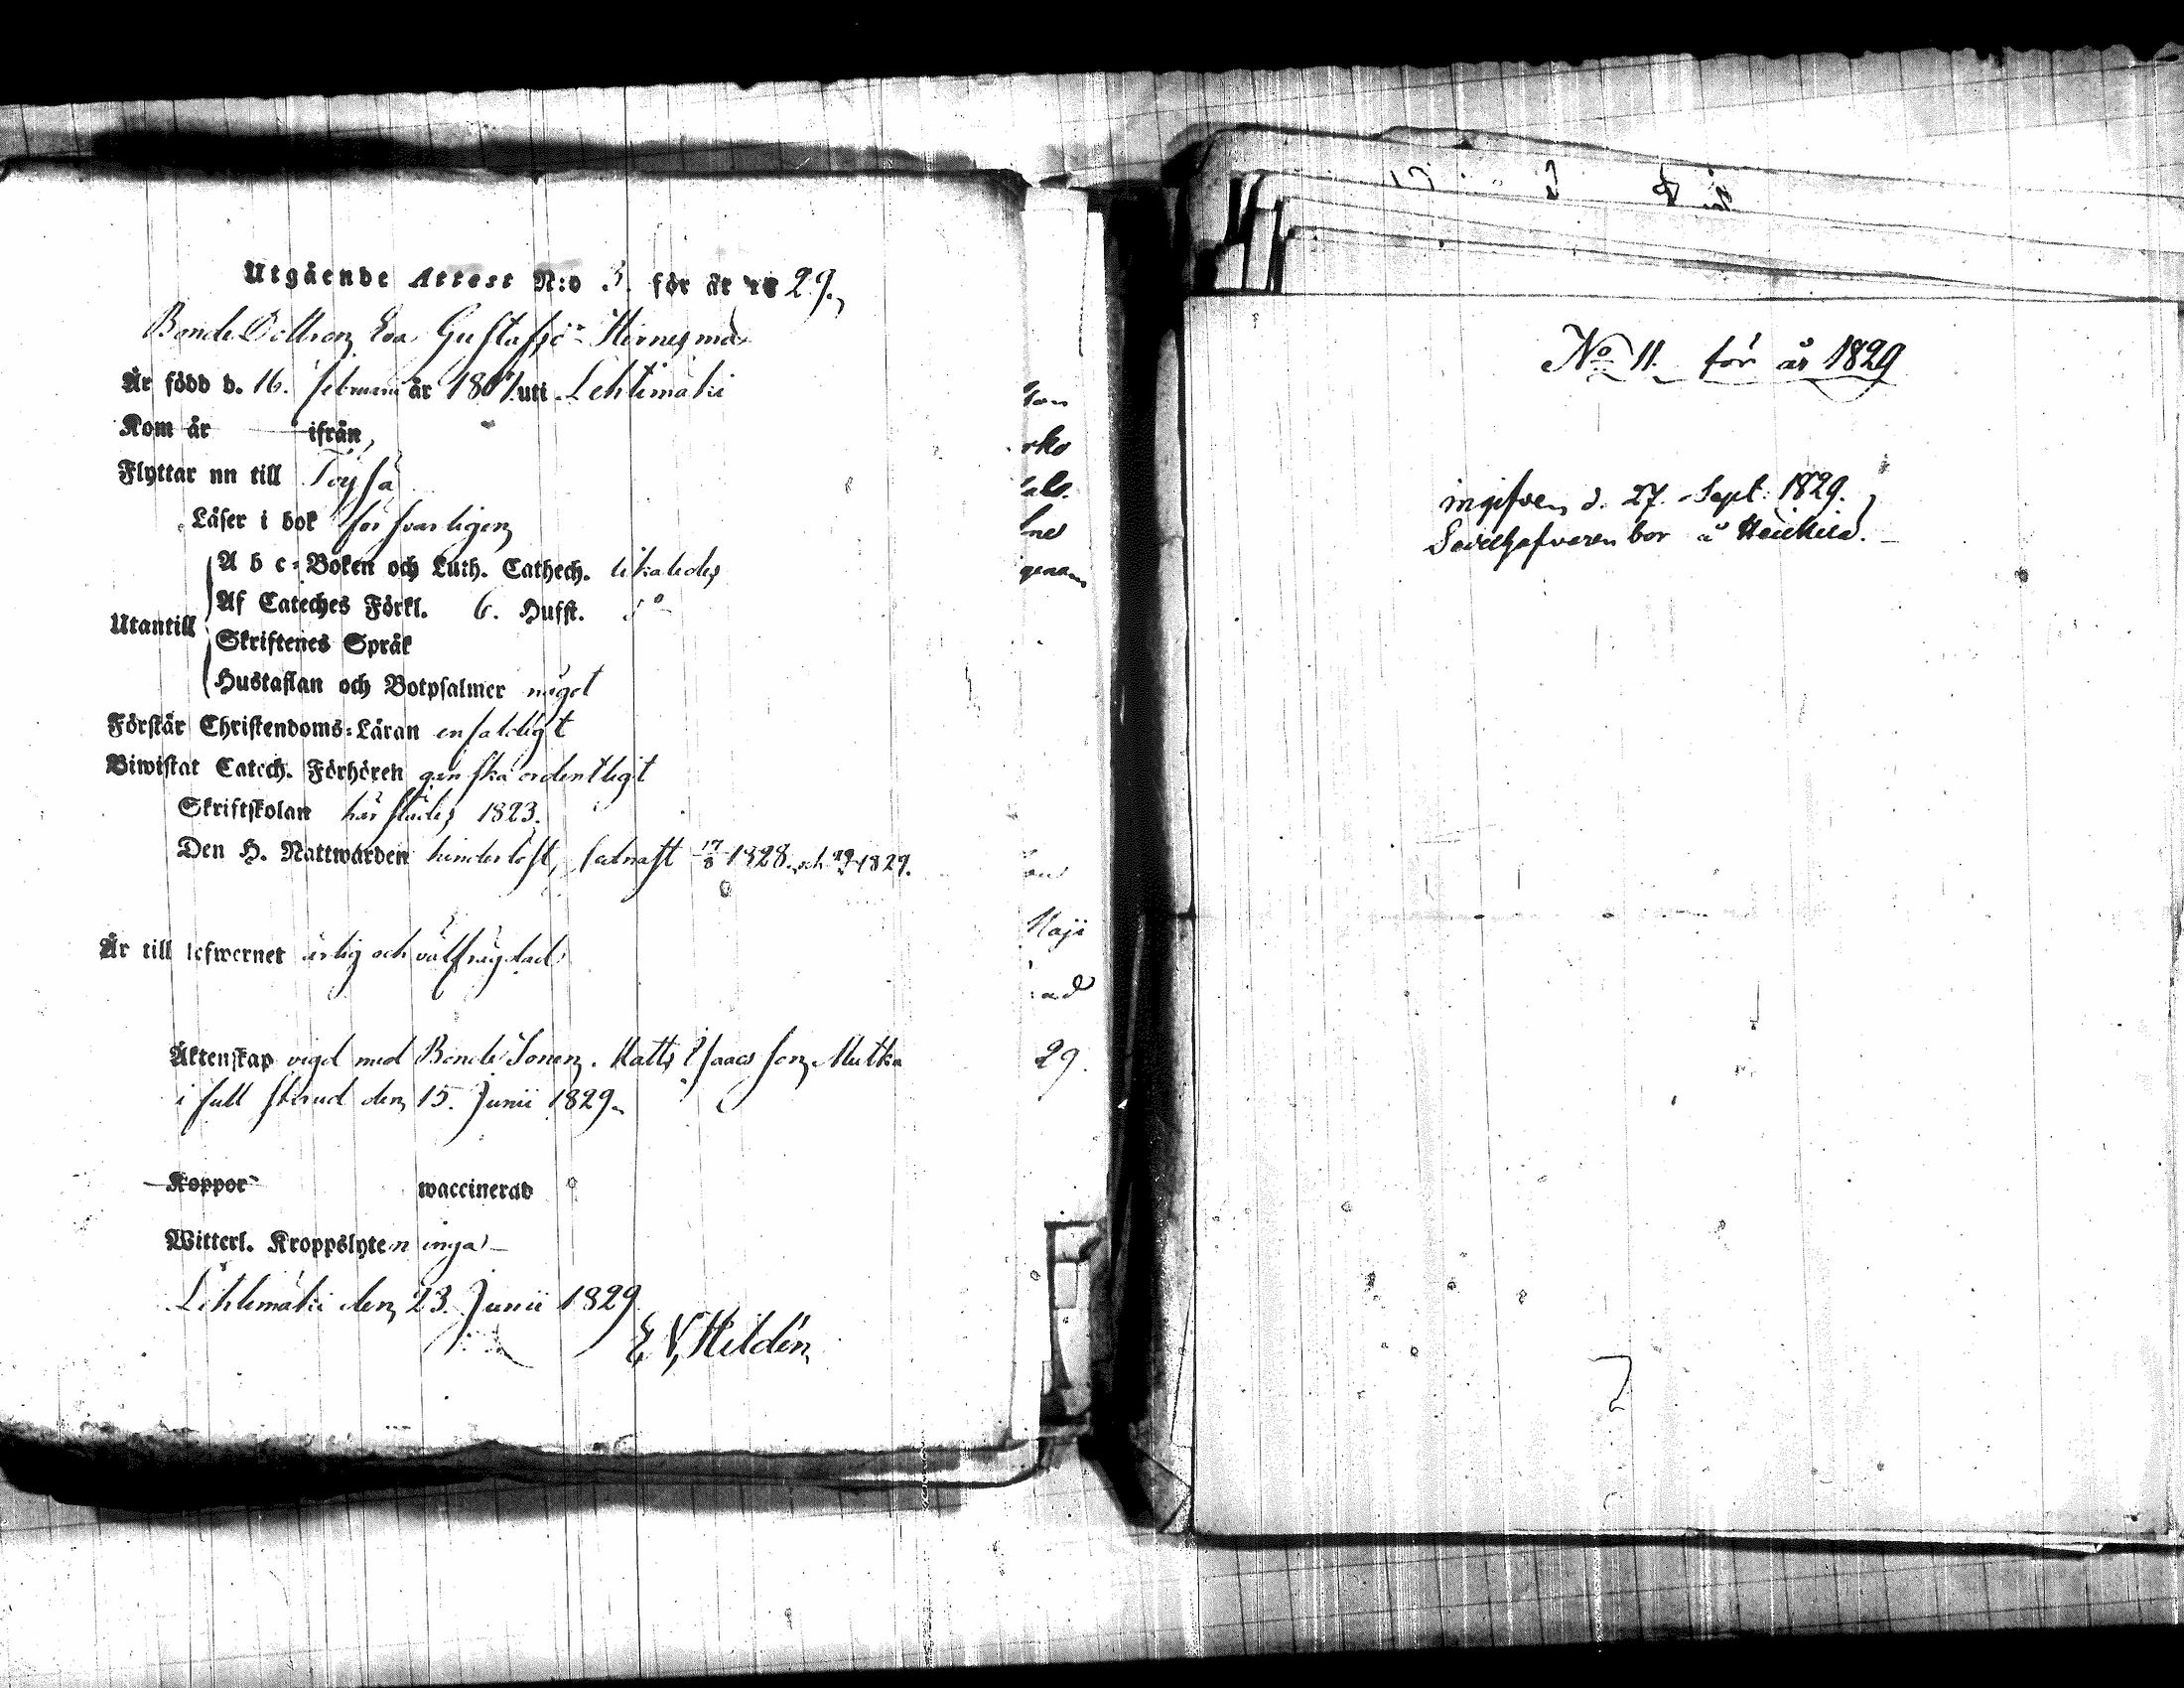 Utgående Attest N:o 3. för år 1829.
Bonde Dottren Eva Gustafsdr Hirnesmä
Är född d. 16. februarii år 1807. uti Lehtimäki
Kom år — ifrån
Flyttar nu till Töysä
Läser i bok försvarligen
Utantill
A b c-Boken och Luth. Cathech. likaledes
Af Cateches Förkl. 6. Hufst. do
Skriftenes Språk
Hustaflan och Botpsalmer något
Förstår Christendoms-Läran enfaldigt
Biwistat Catech. Förhören ganska ordentligt
Skriftskolan härstädes 1823.
Den H. Nattwarden hinderlöst, sednast 17/8 1828. och 1829.
Är till lefwernet ärlig och välfrägdad
Äktenskap vigd med Bonde Sonen Matts Isaacsson Mutka
i full skrud den 15. Junii 1829.
Koppor waccinerad
Witterl. Kroppslyten inga
Lehtimäki den 23. Junii 1829
E. V. Hildén
rko
Maji
29.
No 11. för år 1829
ingifven d. 27. Sept. 1829.
bor å Heikkilä.